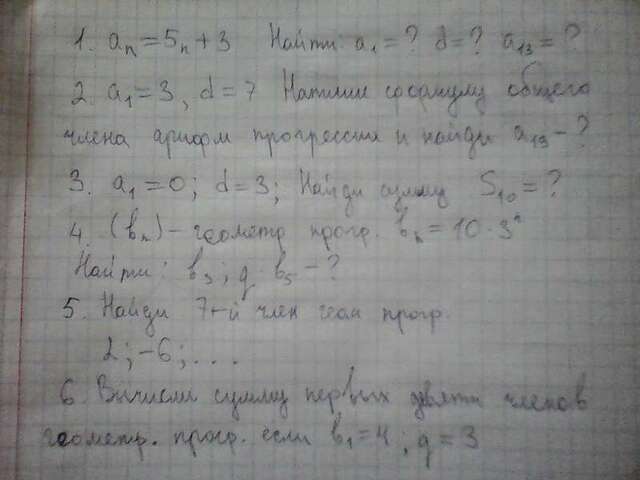 1. aₙ = 5ₙ + 3 Найти: a₁ = ? d = ? a₁₃ = ?
2. a₁ = 3, d = 7 Напиши формулу общего
члена арифм прогрессии и найди a₁₉ - ?
3. a₁ = 0; d = 3; Найди сумму S₁₀ = ?
4. (bₙ) - геометр прогр. bₙ = 10 · 3ⁿ
Найти: b₃; q b₅ - ?
5. Найди 7-й член геом прогр.
2; -6; ...
6. Вычисли сумму первых девяти членов
геометр. прогр. если b₁ = 4; q = 3